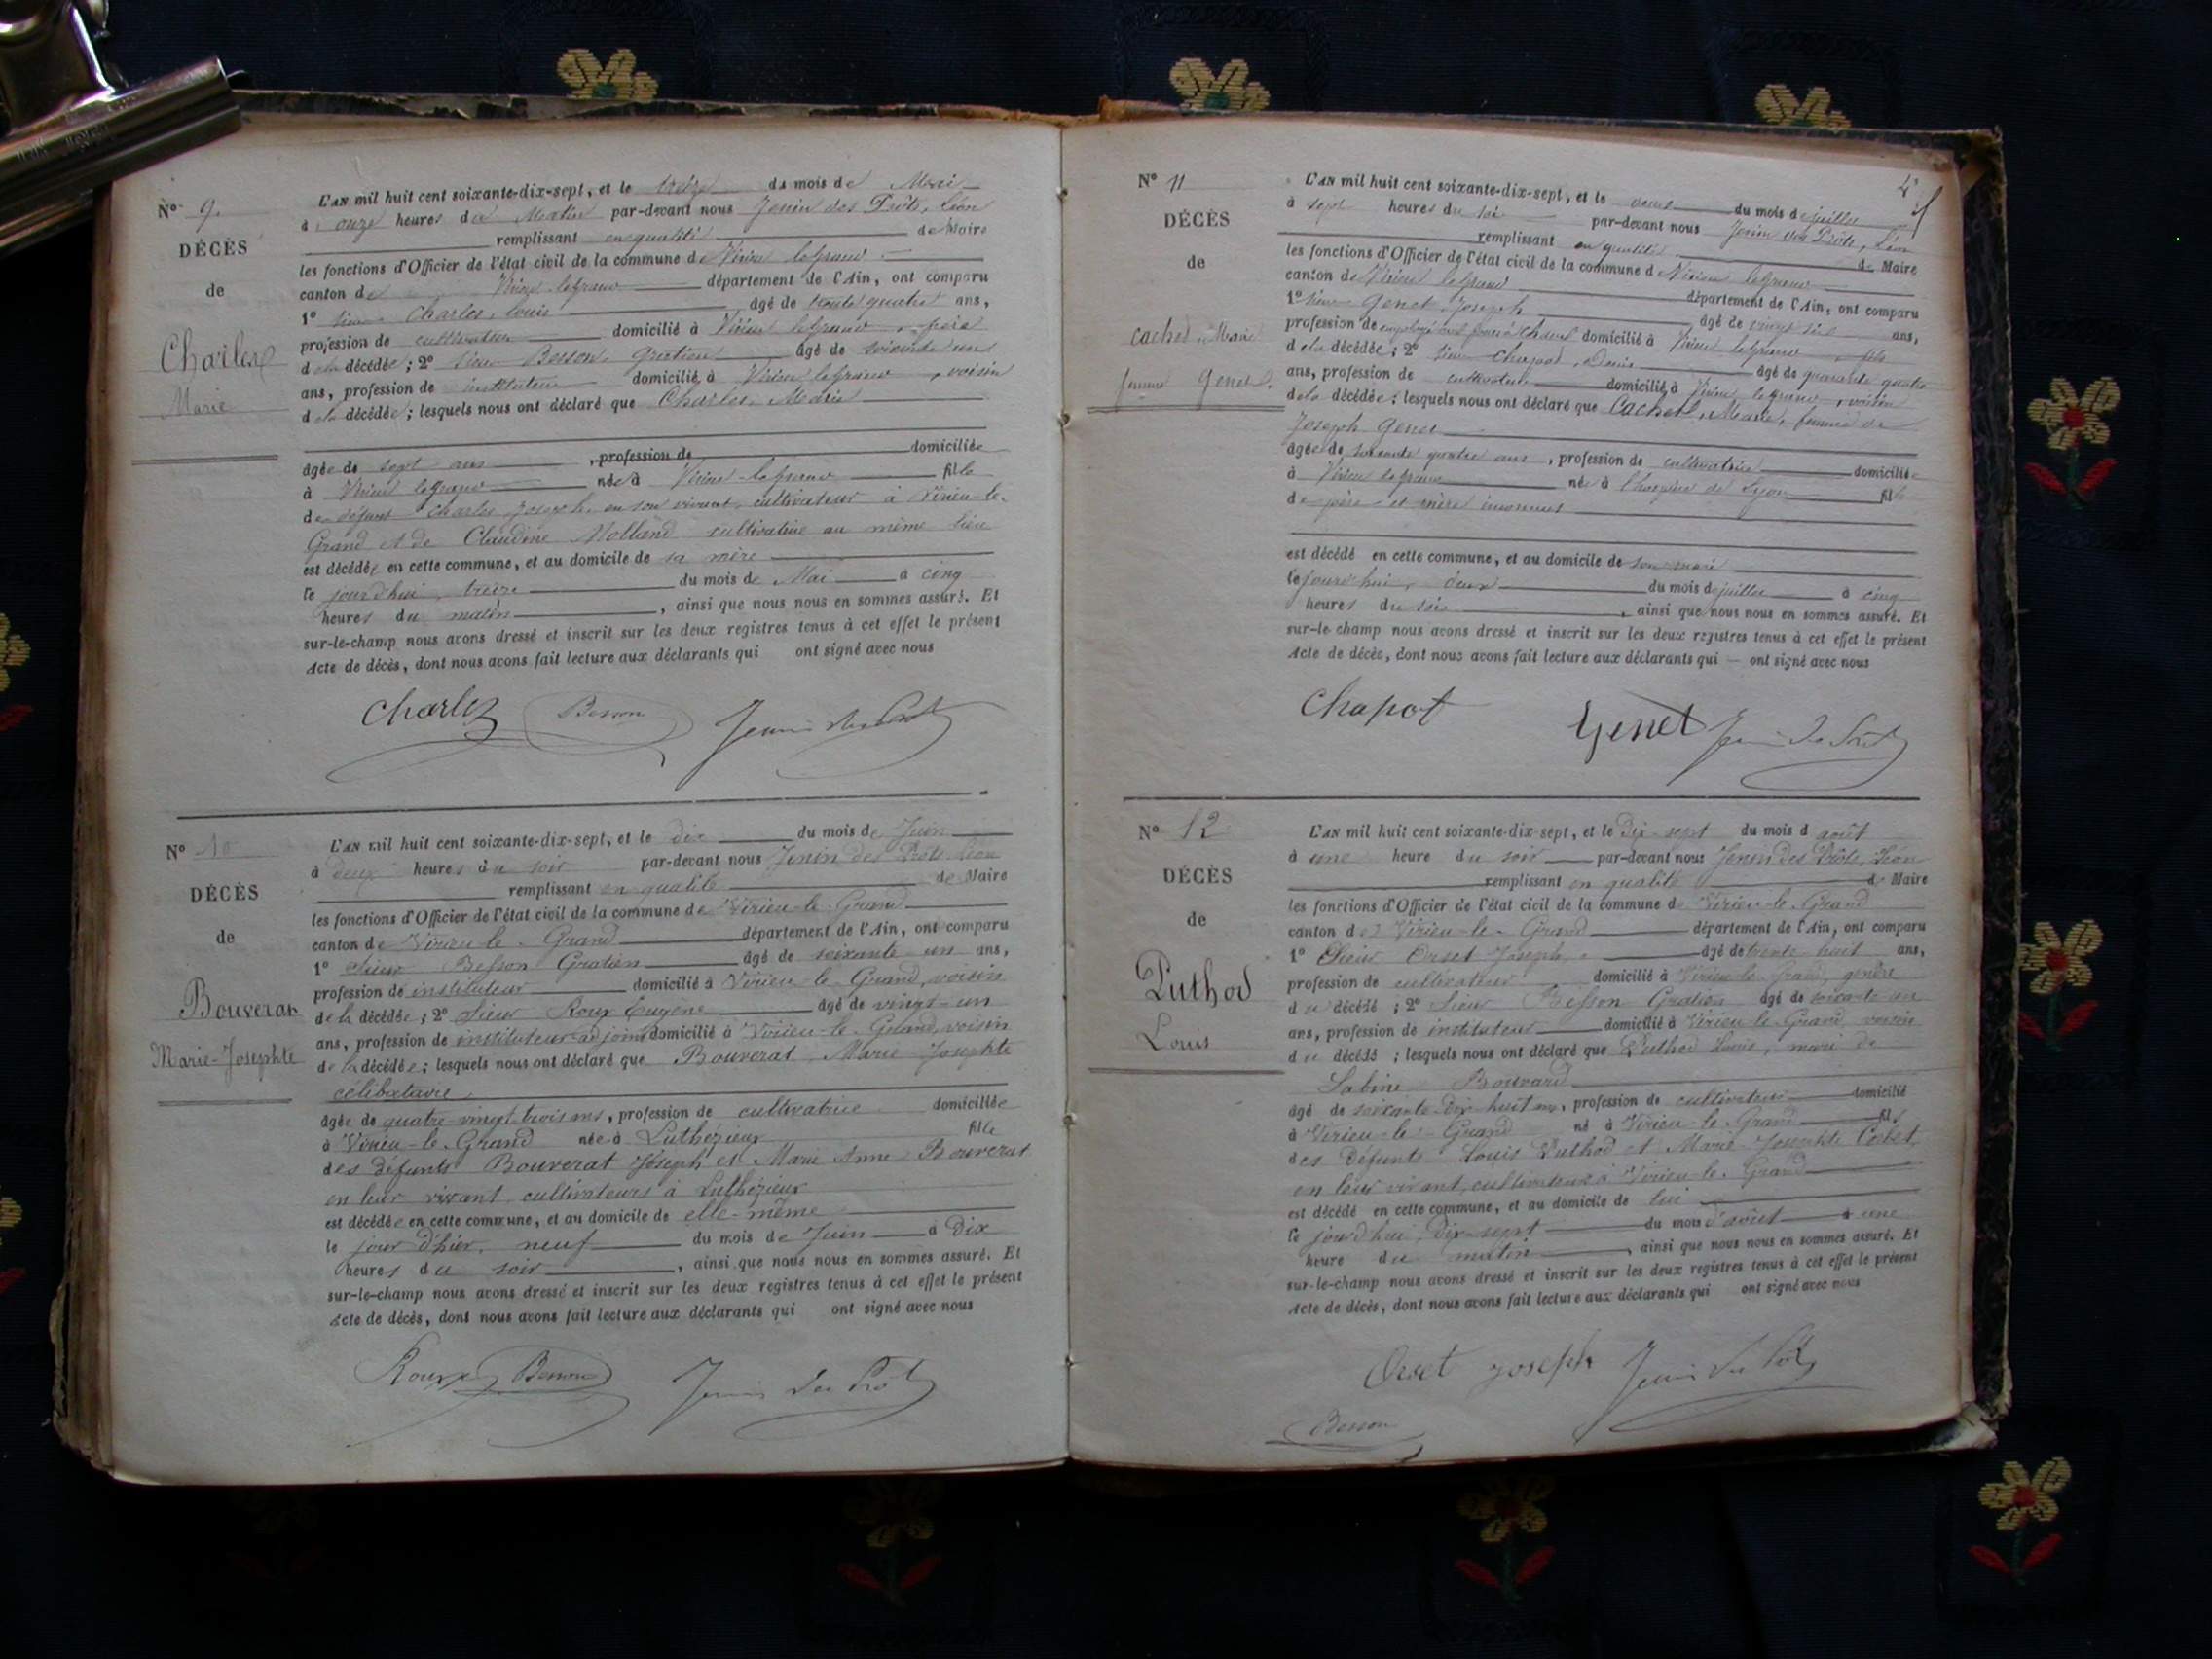 N° 9.
DÉCÈS
de
Charles
Marie
L'AN mil huit cent soixante-dix-sept, et le treize du mois de Mai
à onze heures du Matin par-devant nous Jenin des Prôts, Léon
remplissant en qualité de Maire
les fonctions d'Officier de l'état civil de la commune de Virieu legrand
canton de Virieu legrand département de l'Ain, ont comparu
1° sieur Charles, Louis âgé de trente quatre ans,
profession de cultivateur domicilié à Virieu legrand
de la décédée; 2° sieur Besson, Gratien âgé de soixante un
ans, profession de instituteur domicilié à Virieu legrand, voisin
de la décédée; lesquels nous ont déclaré que Charles, Marie
âgée de sept ans, profession de domiciliée
à Virieu legrand née à Virieu-legrand fille
de défunt Charles Joseph, en son vivant cultivateur à Virieu-le-
Grand et de Claudine Molland cultivatrice au même lieu
est décédée en cette commune, et au domicile de sa mère
le jourd'hui, treize du mois de Mai à cinq
heures du matin, ainsi que nous nous en sommes assuré. Et
sur-le-champ nous avons dressé et inscrit sur les deux registres tenus à cet effet le présent
Acte de décès, dont nous avons fait lecture aux déclarants qui ont signé avec nous
Charles Besson Jenin des Prôts
N° 10
DÉCÈS
de
Bouverat
Marie-Josephte
L'AN mil huit cent soixante-dix-sept, et le dix du mois de Juin
à deux heures du soir par-devant nous Jenin des Prôts Léon
remplissant en qualité de Maire
les fonctions d'Officier de l'état civil de la commune de Virieu-le-Grand
canton de Virieu-le-Grand département de l'Ain, ont comparu
1° Sieur Besson Gratien âgé de soixante un ans,
profession de instituteur domicilié à Virieu-le-Grand, voisin
de la décédée; 2° Sieur Roux Eugène âgé de vingt-un
ans, profession de instituteur-adjoint domicilié à Virieu-le-Grand, voisin
de la décédée; lesquels nous ont déclaré que Bouverat Marie Josephte
célibataire
âgée de quatre-vingt-trois ans, profession de cultivatrice domiciliée
à Virieu-le-Grand née à Luthézieu fille
des défunts Bouverat Joseph et Marie Anne Bouverat
en leur vivant cultivateurs à Luthézieu
est décédée en cette commune, et au domicile de elle-même
le jour d'hier, neuf du mois de Juin à Dix
heures du soir, ainsi que nous nous en sommes assuré. Et
sur-le-champ nous avons dressé et inscrit sur les deux registres tenus à cet effet le présent
Acte de décès, dont nous avons fait lecture aux déclarants qui ont signé avec nous
Roux Besson Jenin des Prôts
N° 11
DÉCÈS
de
Cachet, Marie
femme Genet
L'AN mil huit cent soixante-dix-sept, et le deux du mois de juillet
à sept heures du soir par-devant nous Jenin des Prôts, Léon
remplissant en qualité de Maire
les fonctions d'Officier de l'état civil de la commune de Virieu legrand
canton de Virieu legrand département de l'Ain, ont comparu
1° sieur Genet, Joseph âgé de vingt six ans,
profession de employé domicilié à Virieu legrand, fils
de la décédée; 2° sieur Chapot, Denis âgé de quarante quatre
ans, profession de cultivateur domicilié à Virieu legrand, voisin
de la décédée; lesquels nous ont déclaré que Cachet, Marie, femme de
Joseph Genet
âgée de soixante quatre ans, profession de cultivatrice domiciliée
à Virieu legrand née à l'hospice de Lyon fille
de père et mère inconnus
est décédé en cette commune, et au domicile de son mari
le jourd'hui, deux du mois de juillet à cinq
heures du soir, ainsi que nous nous en sommes assuré. Et
sur-le-champ nous avons dressé et inscrit sur les deux registres tenus à cet effet le présent
Acte de décès, dont nous avons fait lecture aux déclarants qui — ont signé avec nous
Chapot Genet Jenin des Prôts
N° 12
DÉCÈS
de
Puthod
Louis
L'AN mil huit cent soixante-dix-sept, et le Dix-sept du mois d août
à une heure du soir par-devant nous Jenin des Prôts, Léon
remplissant en qualité de Maire
les fonctions d'Officier de l'état civil de la commune de Virieu-le-Grand
canton de Virieu-le-Grand département de l'Ain, ont comparu
1° Sieur Orset Joseph, âgé de trente huit ans,
profession de cultivateur domicilié à Virieu-le-Grand, gendre
du décédé; 2° Sieur Besson Gratien âgé de soixante un
ans, profession de instituteur domicilié à Virieu-le-Grand, voisin
du décédé; lesquels nous ont déclaré que Puthod Louis, mari de
Sabine Bouvard
âgé de soixante-dix-huit ans, profession de cultivateur domicilié
à Virieu-le-Grand né à Virieu-le-Grand fils
des défunts Louis Puthod et Marie Josephte Cobet
en leur vivant, cultivateurs à Virieu-le-Grand
est décédé en cette commune, et au domicile de lui
le jourd'hui, dix-sept du mois d'août à une
heure du matin, ainsi que nous nous en sommes assuré. Et
sur-le-champ nous avons dressé et inscrit sur les deux registres tenus à cet effet le présent
Acte de décès, dont nous avons fait lecture aux déclarants qui ont signé avec nous
Orset Joseph Jenin des Prôts
Besson